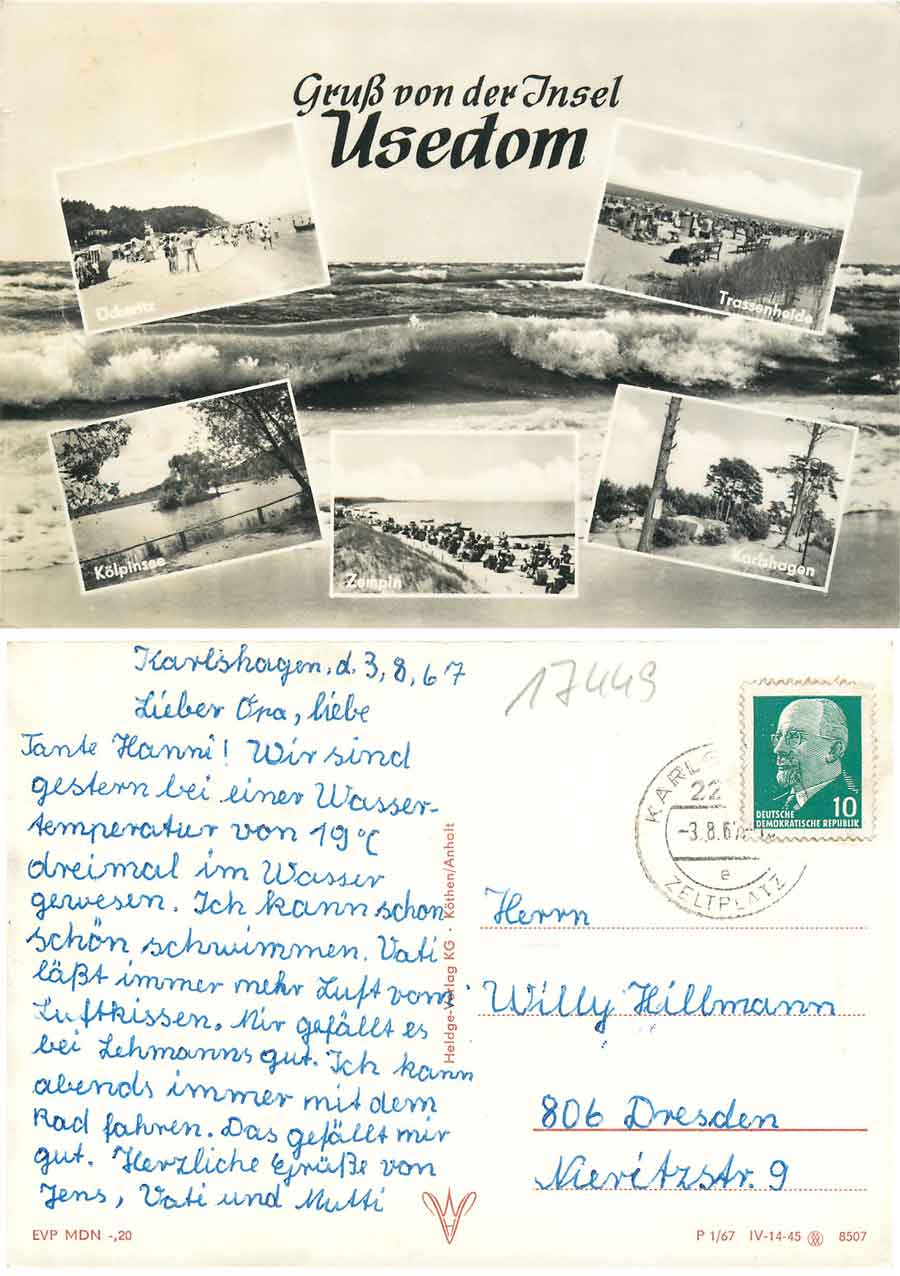 Gruß von der Insel
Usedom
Ückeritz
Trassenheide
Kölpinsee
Zempin
Karlshagen
Karlshagen, d. 3, 8, 67
Lieber Opa, liebe
Tante Hanni! Wir sind
gestern bei einer Wasser-
temperatur von 19°C
dreimal im Wasser
gewesen. Ich kann schon
schön schwimmen. Vati
läßt immer mehr Luft vom
Luftkissen. Mir gefällt es
bei Lehmanns gut. Ich kann
abends immer mit dem
Rad fahren. Das gefällt mir
gut. Herzliche Grüße von
Jens, Vati und Mutti
EVP MDN -,20
Heldge-Verlag KG · Köthen/Anhalt
17449
DEUTSCHE
DEMOKRATISCHE REPUBLIK
10
22
-3.8.6
e
ZELTPLATZ
Herrn
Willy Hillmann
806 Dresden
Nieritzstr. 9
P 1/67 IV-14-45 8507